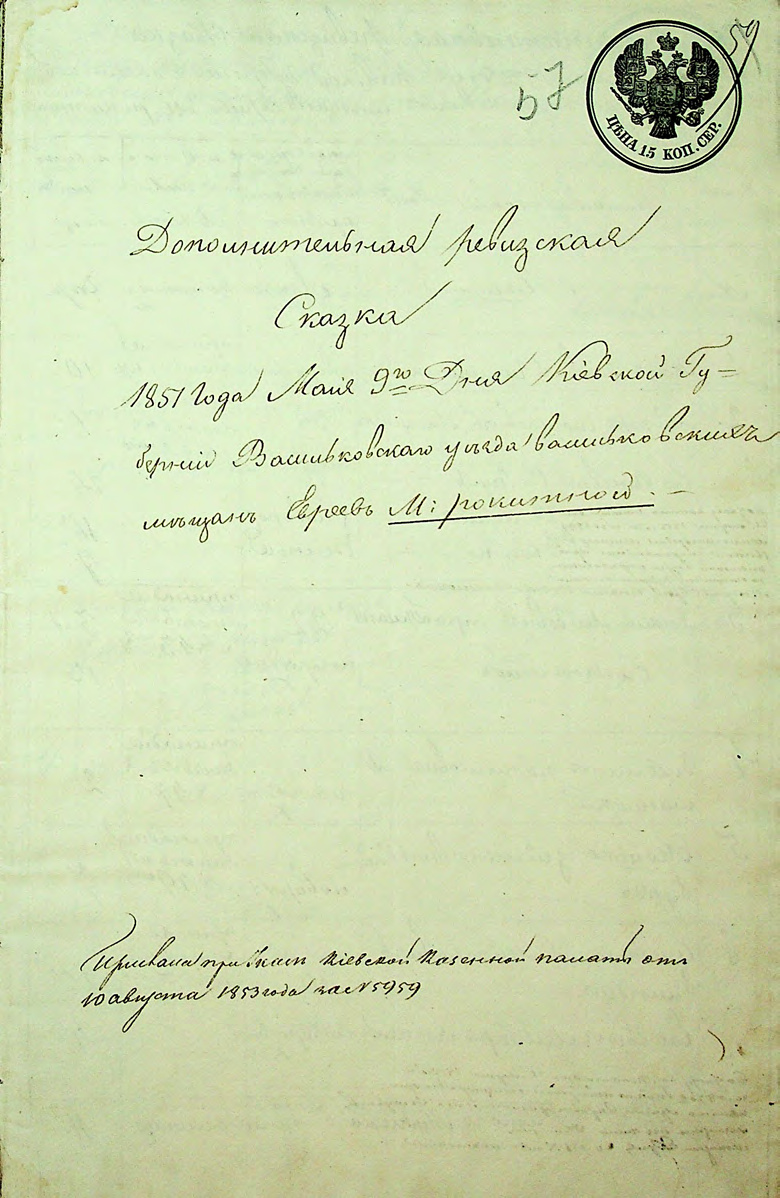 57
59
ЦѢНА 15 КОП. СЕР.
Дополнительная ревизская
Сказка
1851 Года Мая 9го Дня Кіевской Гу=
берніи Васильковскаго уѣзда васильковскихъ
мѣщанъ Евреевъ М: рокитной. —
при Указѣ Кіевской Казенной палаты отъ
10 августа 1853 года за № 5959